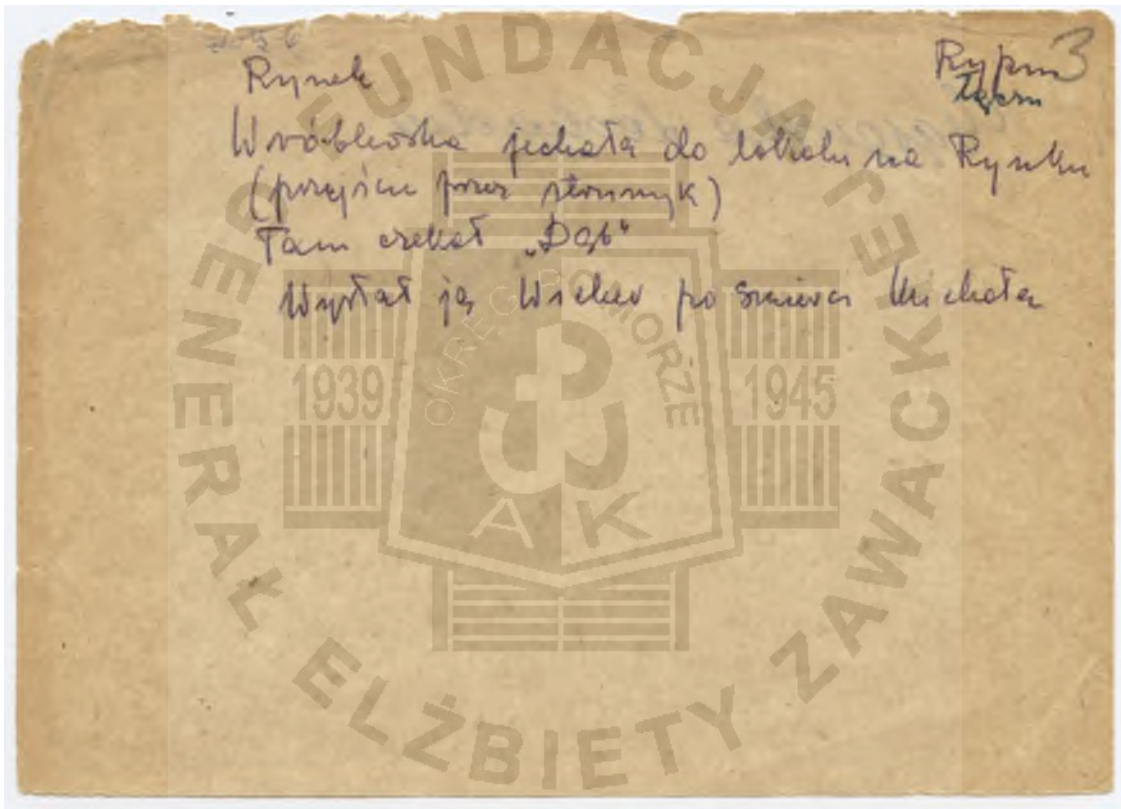 Rynek
Rypin 3
Łączn
Wróblewska jechała do lokalu na Rynku
(przejście przez strumyk)
Tam czekał „Dąb"
Wysłał ją Wicher po śmierci Michała
FUNDACJA GENERAŁ ELŻBIETY ZAWACKIEJ
OKRĘG POMORZE
1939
1945
A K